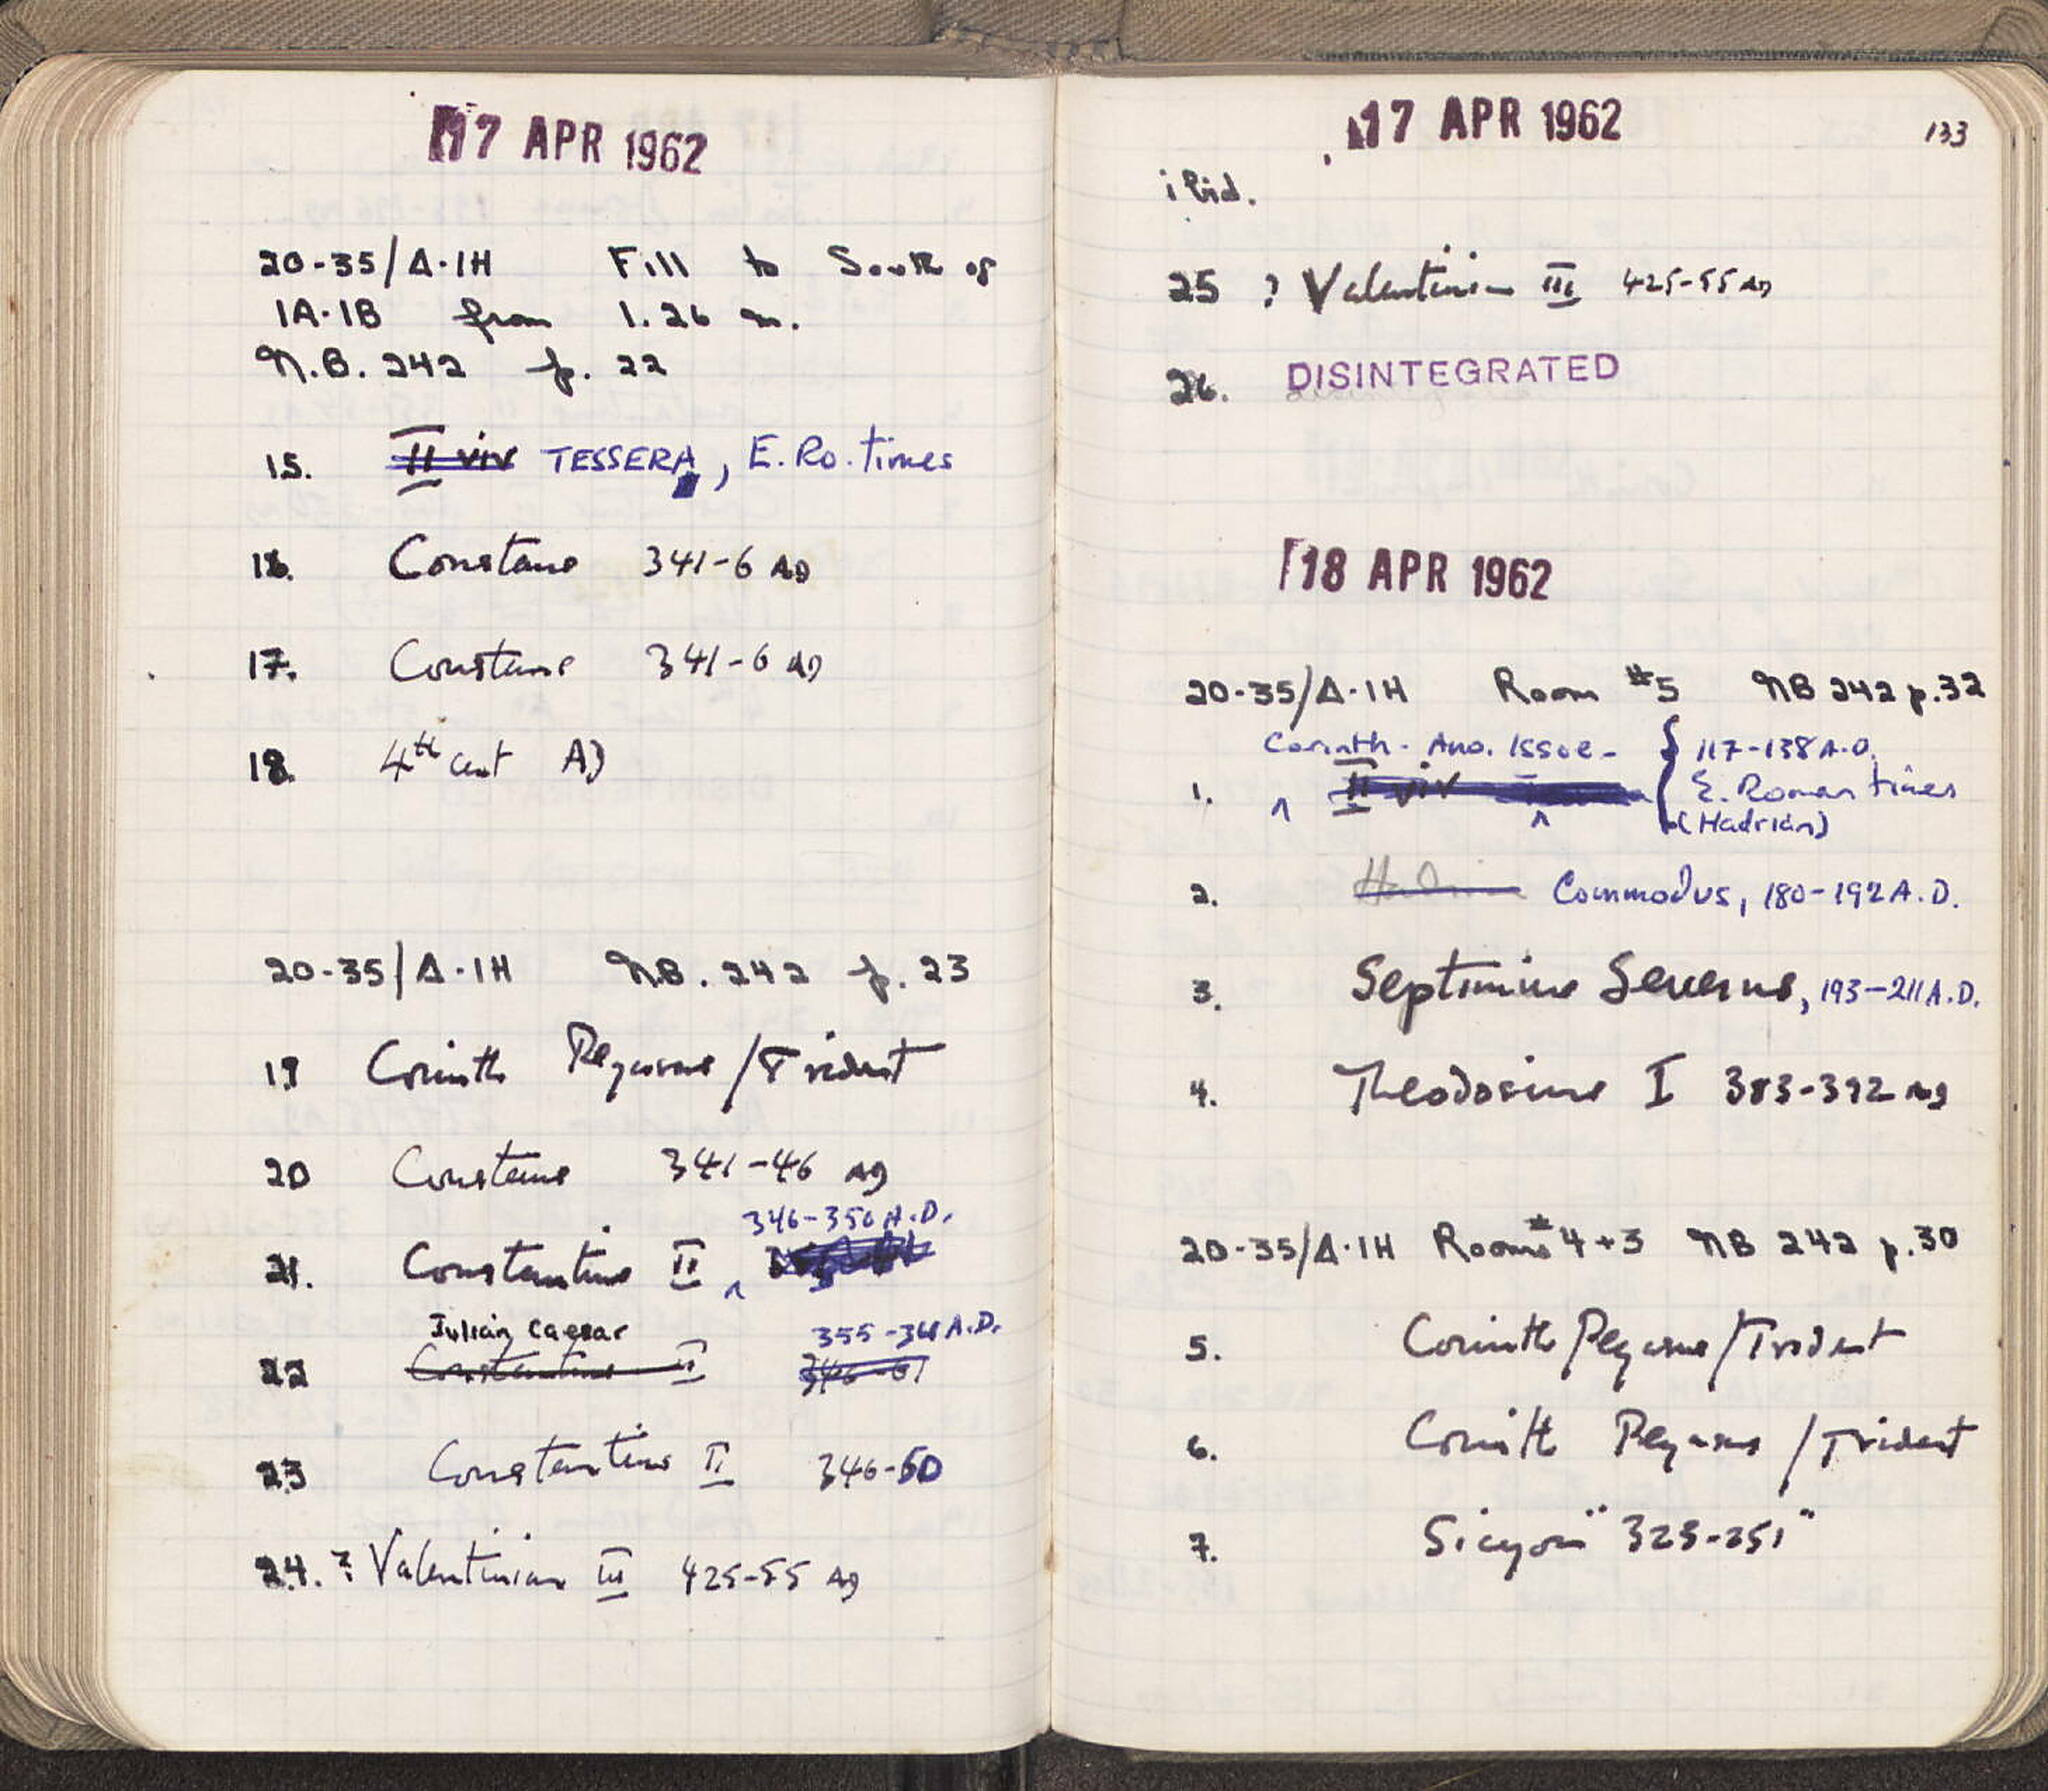 17 APR 1962
20-35/Δ·1H Fill to South of
1A·1B from 1.26 m.
N.B. 242 p. 22
15. II viv TESSERA, E. Ro. times
16. Constans 341-6 AD
17. Constans 341-6 AD
18. 4th cent AD
20-35/Δ·1H N.B. 242 p. 23
19 Corinth Pegasus/Trident
20 Constans 341-46 AD
346-350 A.D.
21. Constantius II
Julian Caesar 355-361 A.D.
22 Constantius II 346-61
23 Constantius II 346-50
24. ? Valentinian III 425-55 AD
17 APR 1962 133
ibid.
25 ? Valentinian III 425-55 AD
26. DISINTEGRATED
18 APR 1962
20-35/Δ·1H Room #5 NB 242 p. 32
Corinth - Ano. Issue - 117-138 A.D.
1. II viv E. Roman times
(Hadrian)
2. Commodus, 180-192 A.D.
3. Septimius Severus, 193-211 A.D.
4. Theodosius I 383-392 AD
20-35/Δ·1H Rooms #4+3 NB 242 p. 30
5. Corinth Pegasus/Trident
6. Corinth Pegasus/Trident
7. Sicyon "323-251"